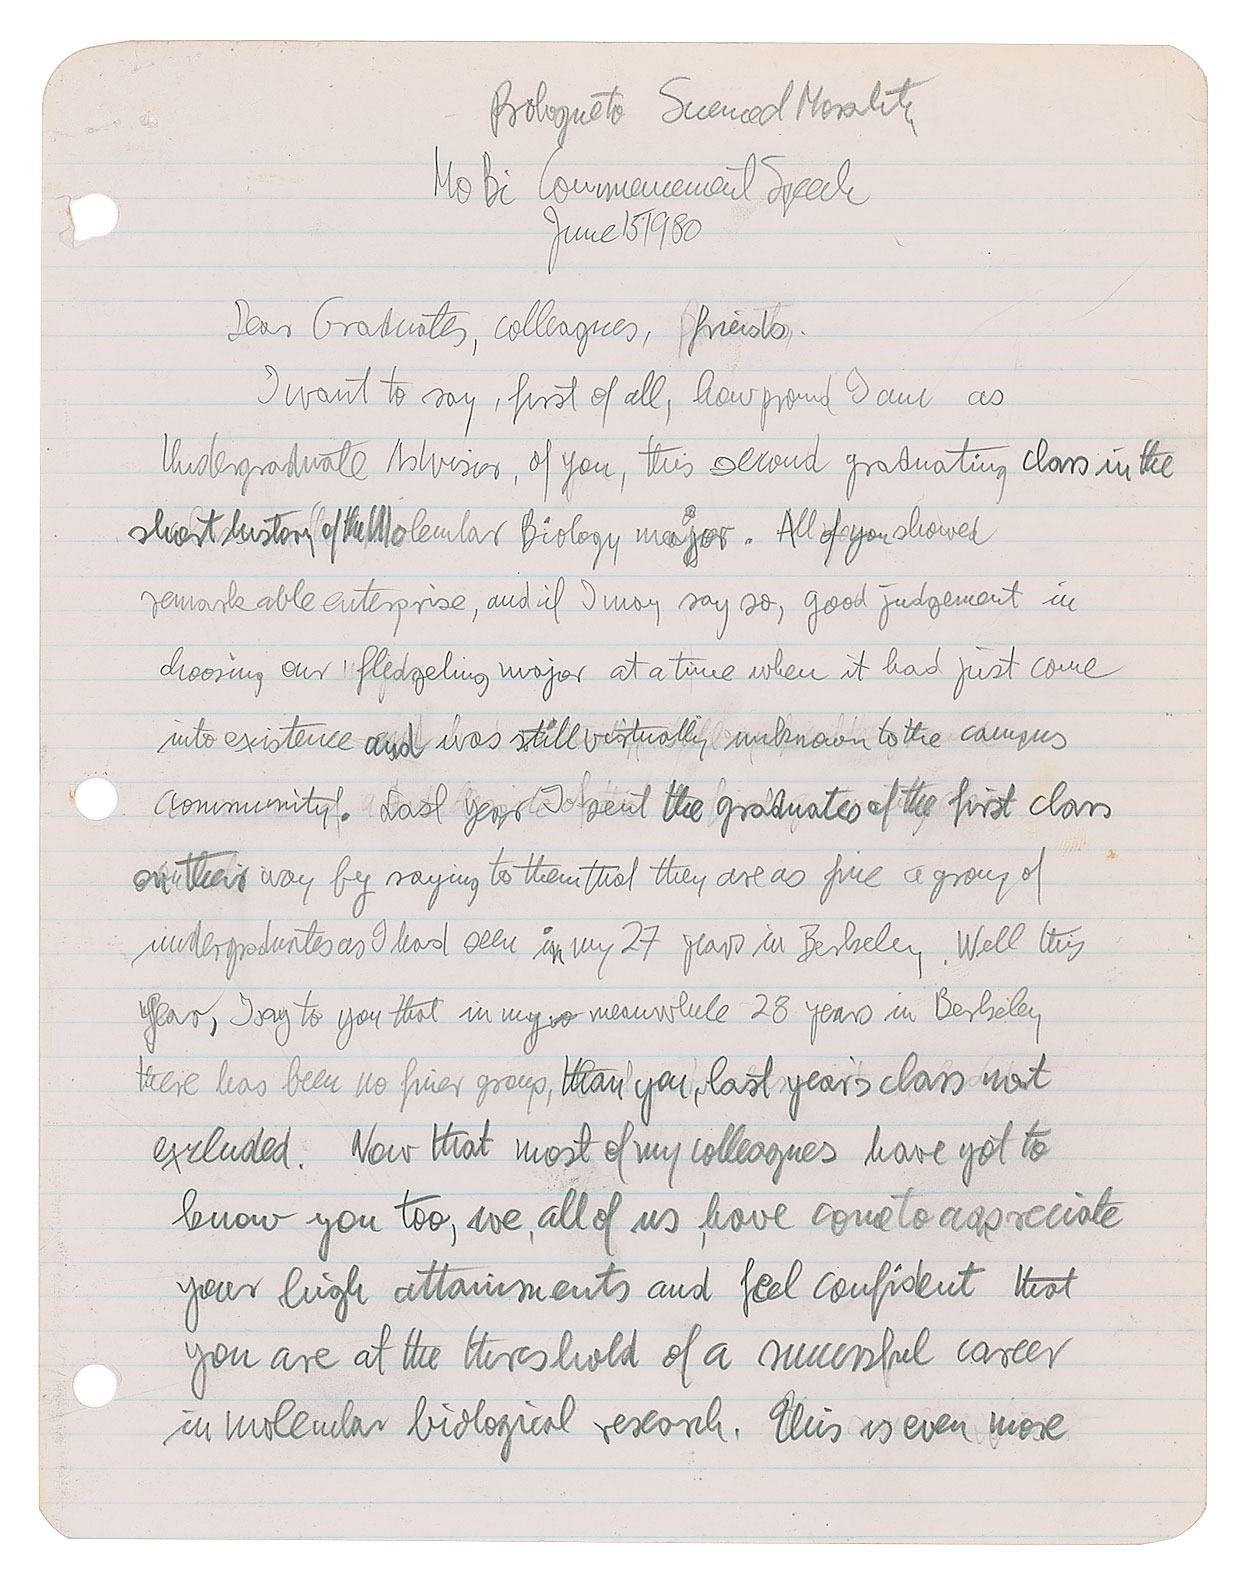 Prologue to Science and Morality
MoBi Commencement Speech
June 15 1980
Dear Graduates, colleagues, friends.
I want to say, first of all, how proud I am as
Undergraduate Advisor, of you, this second graduating class in the
short history of the Molecular Biology major. All of you showed
remarkable enterprise, and if I may say so, good judgement in
choosing our fledgeling major at a time when it had just come
into existence and was still virtually unknown to the campus
community. Last year I sent the graduates of the first class
on their way by saying to them that they are as fine a group of
undergraduates as I had seen in my 27 years in Berkeley. Well this
year, I say to you that in my meanwhile 28 years in Berkeley
there has been no finer group, than you, last year's class not
excluded. Now that most of my colleagues have got to
know you too, we, all of us, have come to appreciate
your high attainments and feel confident that
you are at the threshold of a successful career
in molecular biological research. This is even more